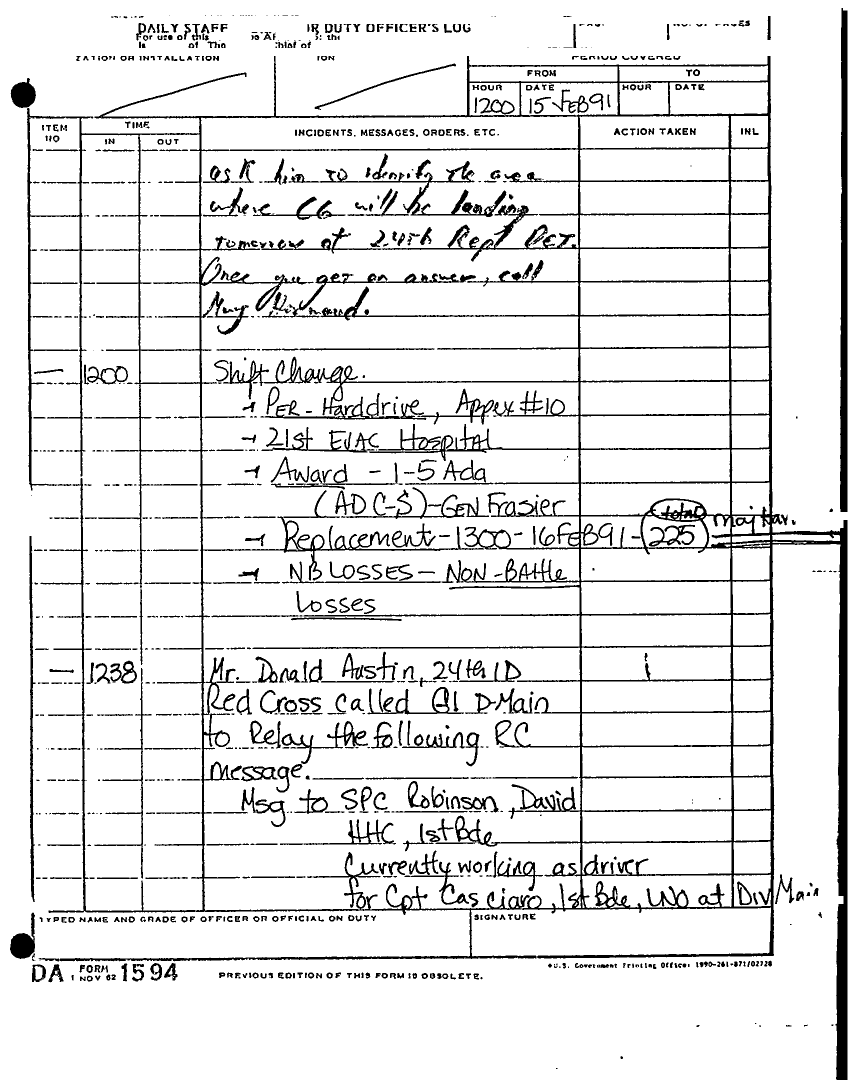 DAILY STAFF OR DUTY OFFICER'S LOG
For use of this the
of The Chief of
NO. OF PAGES
ZATION OR INSTALLATION
ION
PERIOD COVERED
FROM TO
HOUR DATE HOUR DATE
1200 15 FEB91
ITEM NO TIME IN OUT INCIDENTS, MESSAGES, ORDERS, ETC. ACTION TAKEN INL
ask him to identify the area
where CG will be landing
tomorrow at 24th Repl Det.
Once you get an answer, call
Maj
— 1200 Shift Change.
→ PER-Harddrive, Appex #10
→ 21st EVAC Hospital
→ Award - 1-5 Ada
(ADC-S)-GEN Frasier
→ Replacement-1300-16FEB91-(225) total maj Kav.
→ NB LOSSES - NON-BAttle
Losses
— 1238 Mr. Donald Austin, 24th ID
Red Cross called G1 D-Main
to Relay the following RC
message.
Msg to SPC Robinson, David
HHC, 1st Bde
Currently working as driver
for Cpt Casciaro, 1st Bde, LNO at Div Main
TYPED NAME AND GRADE OF OFFICER OR OFFICIAL ON DUTY SIGNATURE
DA FORM 1 NOV 62 1594 PREVIOUS EDITION OF THIS FORM IS OBSOLETE. *U.S. Government Printing Office: 1990-261-871/02728